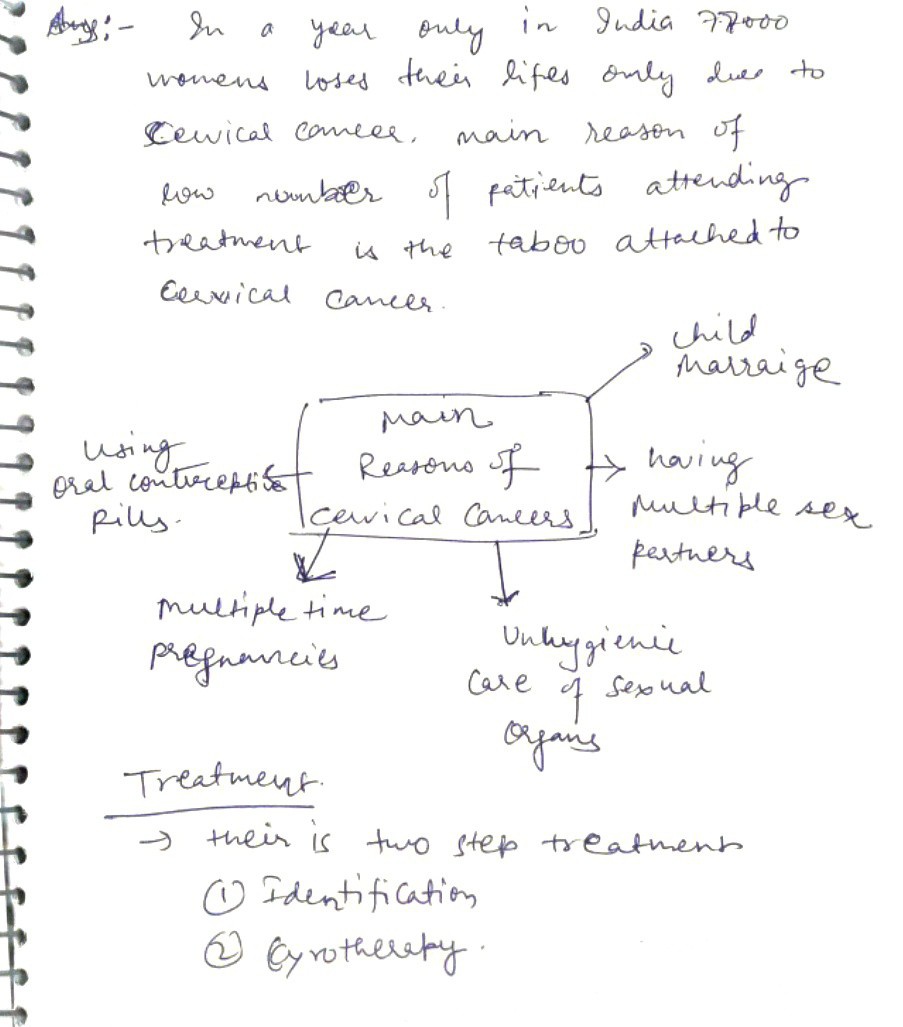 Ans:- In a year only in India 77000
womens loses their lifes only due to
Cervical cancer. main reason of
low number of patients attending
treatment is the taboo attached to
Cervical cancer.
child
Marraige
Main
Reasons of
cervical Cancers
Using
oral contraceptive
Pills.
having
Multiple sex
partners
Multiple time
pregnancies
Unhygienic
Care of sexual
Organs
Treatment.
→ their is two step treatment
① Identification
② Cyrotherapy.